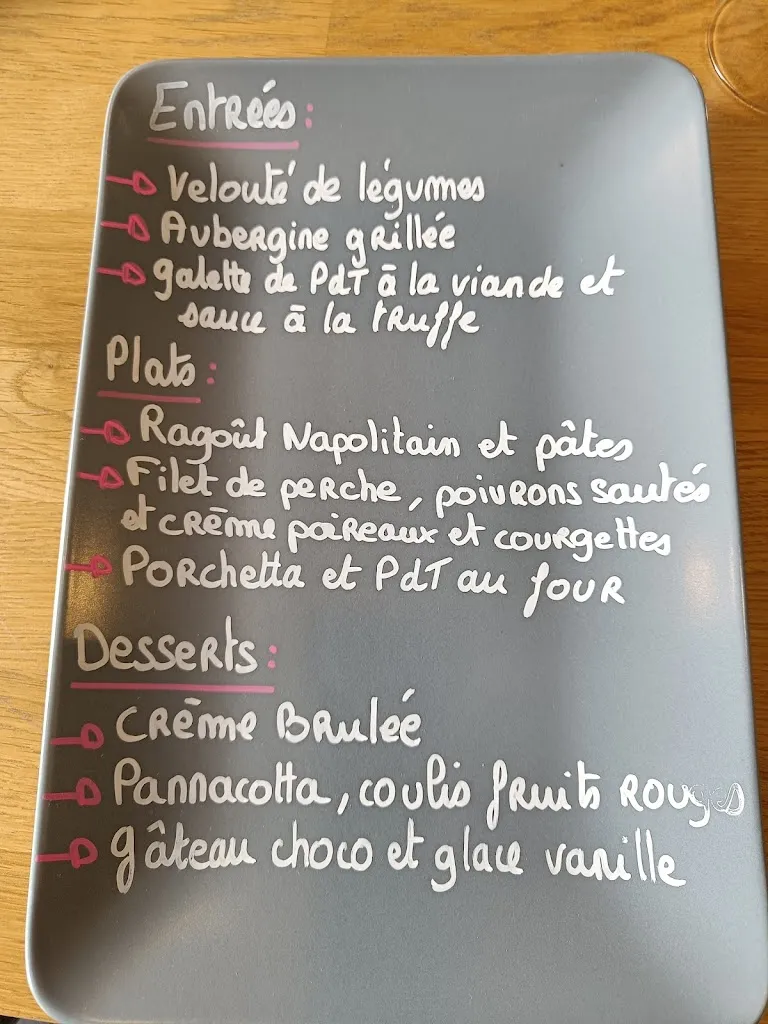 Entrées :
Velouté de légumes
Aubergine grillée
galette de PdT à la viande et
sauce à la truffe
Plats :
Ragoût Napolitain et pâtes
Filet de perche, poivrons sautés
et crème poireaux et courgettes
Porchetta et PdT au four
Desserts :
Crème Brulée
Pannacotta, coulis fruits rouges
gâteau choco et glace vanille